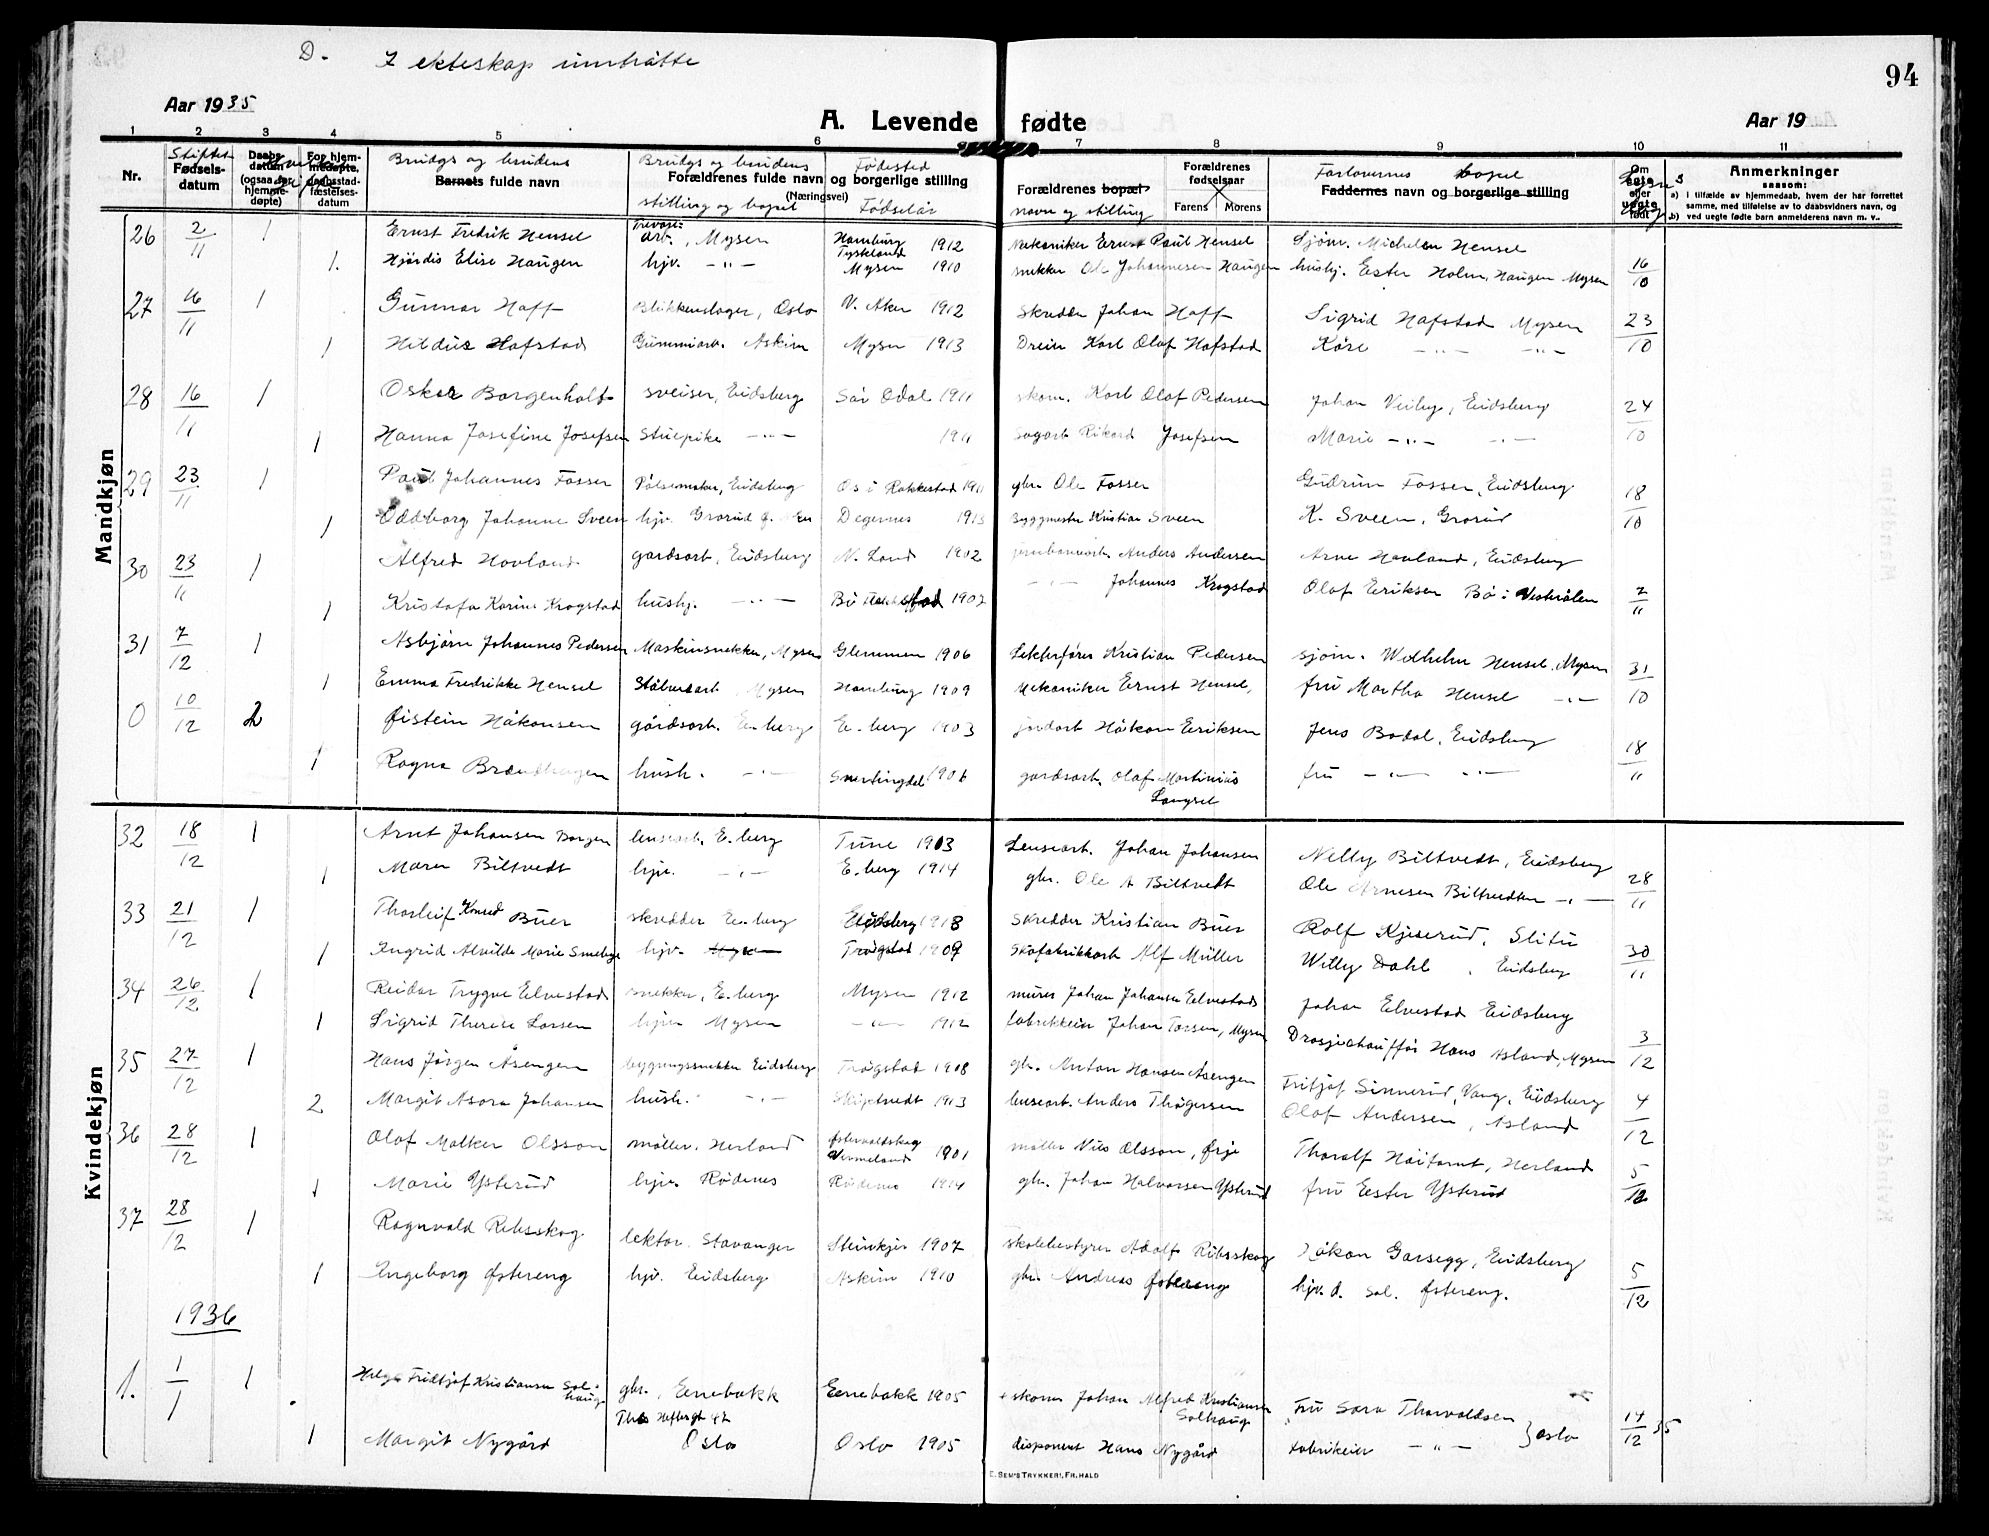 94
D. I ekteskap inntrådte
Aar 1935
A. Levende fødte
Aar 19
1 2 3 4 5 6 7 8 9 10 11
Nr.
Stiftet
Fødsels-
datum
Daabs-
datum
(ogsaa for
hjemme-
døpte)
For hjem-
medøpte,
daabsstad-
fæstelses-
datum
Brudgs og brudens
Barnets fulde navn
Brudgs og brudens Fødested
Forældrenes fulde navn og borgerlige stilling
(Næringsvei)
stilling og bopel Fødselår
Forældrenes bopæl
navn og stilling
Forældrenes
fødselsaar
Farens Morens
Forlovernes bopel
Faddernes navn og borgerlige stilling
Om
egte
eller
uegte
født
Anmerkninger
saasom:
a) i tilfælde av hjemmedaab, hvem der har forrettet
samme, med tilføielse av to daabsvidners navn, og
b) ved uegte fødte barn anmelderens navn m. v..
Mandkjøn
26 2/11 1 Ernst Fredrik Hensel arb., Mysen Hamburg Tyskland 1912 Mekaniker Ernst Paul Hensel Sjøm. Hensel
1. Hjørdis Elise Haugen hjv. -"- Mysen 1910 snekker Ole Johannesen Haugen hushj. Ester Holm, Haugen Mysen 16/10
27 16/11 1 Gunnar Haff Blikkenslager, Oslo V. Aker 1912 Skredder Johan Haff Sigrid Hafstad Mysen 23/10
1 Hildur Hafstad Gummiarb. Askim Mysen 1913 Karl Olaf Hafstad Kåre -"- -"-
28 16/11 1 Oskar Borgenholt sveiser, Eidsberg Sør Odal 1911 skom. Karl Olaf Pedersen Johan Veiby, Eidsberg 24/10
1 Hanna Josefine Josefsen Stuepike -"- 1911 Sagarb. Rikard Josefsen Marie -"- -"-
29 23/11 1 Paul Johannes Fosser Pølsemaker, Eidsberg Os i Rakkestad 1911 gbr. Ole Fosser Gudrun Fosser, Eidsberg 18/10
1 Oddborg Johanne Sveen hjv. Grorud Degernes 1913 Byggmester Kristian Sveen K. Sveen, Grorud
30 23/11 1 Alfred Hovland gardsarb, Eidsberg N. Land 1902 jernbanearb. Anders Andersen Arne Hovland, Eidsberg
1 Kristofa Karine Krogstad hushj. -"- Bø 1907 -"- Johannes Krogstad Olaf Eriksen Bø i Vesterålen 2/11
31 7/12 1 Asbjørn Johannes Pedersen Maskinsnekker, Mysen Glemmen 1906 Lekterfører Kristian Pedersen sjøm. Wilhelm Hensel, Mysen 31/10
1 Emma Fredrikke Hensel Mysen Hamburg 1909 Mekaniker Ernst Hensel, fru Martha Hensel -"-
0 10/12 2 Øistein Håkonsen gårdsarb. E.berg E.berg 1903 jordarb Håkon Eriksen Jens Bodal, Eidsberg 18/11
1 Ragna Brændhagen hush. -"- Snertingdal 1906 gardsarb. Olaf Martinius Langsel fru -"- -"-
Kvindekjøn
32 18/12 1 Arnt Johansen Borgen lensearb. E.berg Tune 1903 Lensearb. Johan Johansen Nelly Biltvedt, Eidsberg
1 Maren Biltvedt hjv. -"- E.berg 1914 gbr. Ole A Biltvedt Ole Arnesen Biltvedten -"- 28/11
33 21/12 1 Thorleif Konrad Buer skredder E.berg Eidsberg 1918 Skredder Kristian Buer Rolf Kjiserud, Slitu
1 Ingrid Alvilde Marie hjv. Trøgstad 1909 Skofabrikkarb Alf Müller Willy Dahl, Eidsberg 30/11
34 26/12 1 Reidar Trygve Elvestad snekker, E.berg Mysen 1912 murer Johan Johansen Elvestad Johan Elvestad Eidsberg
1 Sigrid Therese Larsen hjv. Mysen -"- 1912 fabrikkeier Johan Larsen, Mysen Drosjechauffør Hans Asland, Mysen 3/12
35 27/12 1 Hans Jørgen Åsengen bygningssnekker Eidsberg Trøgstad 1908 gbr. Anton Hansen Åsengen Fritjof Sinnerud, Vang, Eidsberg 4/12
2 Margit Asora Johansen hush. -"- Skiptvedt 1913 lensearb. Anders Thøgersen Olaf Andersen, Asland
36 28/12 1 Olof Malker Olsson møller. Herland Østervaldskog Vermeland 1901 møller Nils Olsson, Ørje Thoralf Herland 5/12
1 Marie Ysterud hjv. Rødenes Rødenes 1914 gbr. Johan Halvorsen Ysterud fru Ester Ysterud
37 28/12 1 Ragnvald Ribsskog lektor. Stavanger Steinkjer 1907 skolebestyrer Adolf Ribsskog Håkon Garsegg, Eidsberg
1 Ingeborg Østereng hjv. Eidsberg Askim 1910 gbr. Andreas Østereng hjv. d. Sol. Østereng. 5/12
1936
1. 1/1 1 Helge Fridtjof Kristiansen Solhaug gbr., Enebakk Enebakk 1905 skom Johan Alfred Kristiansen Solhaug Fru Sara Thorvaldsen } Oslo 14/12 35
1 Margit Nygård Ths Heftyesgt 42 Oslo Oslo 1905 disponent Hans Nygård Fabrikeier -"-
E. SEM'S TRYKKERI, FR.HALD